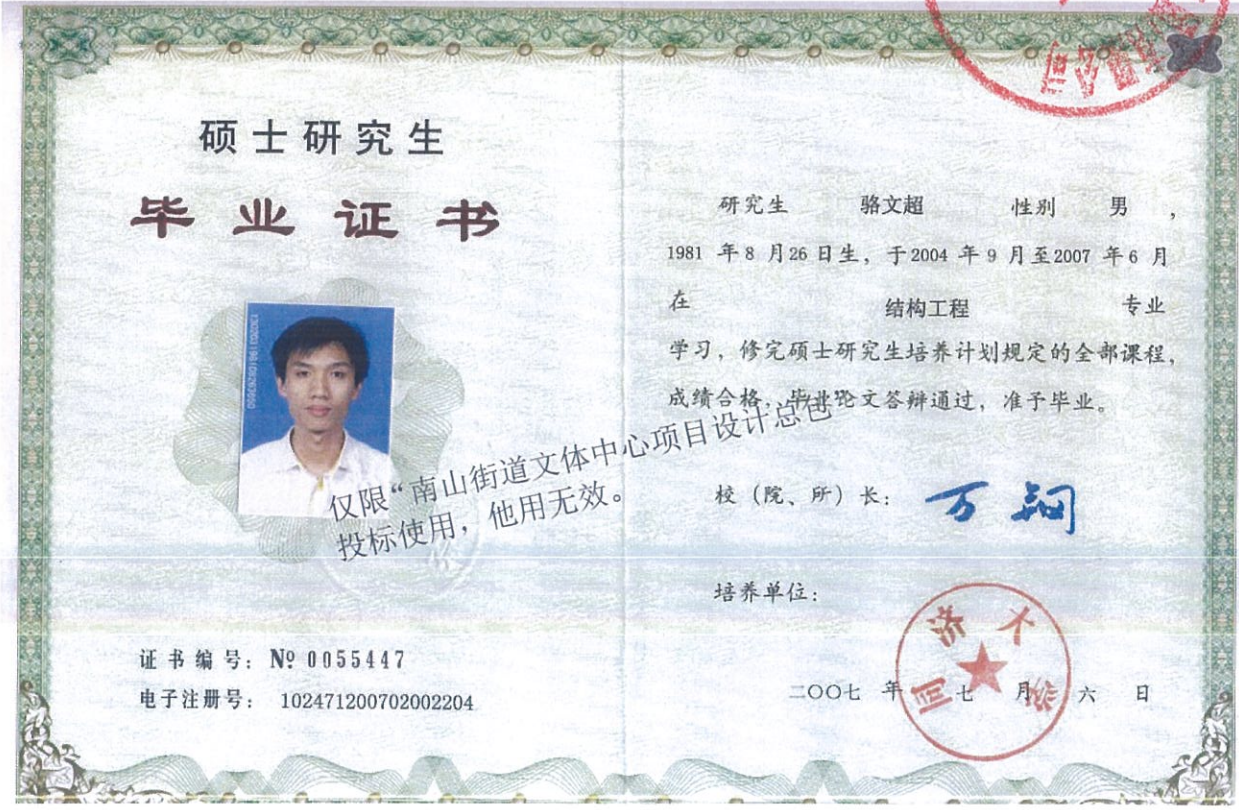 硕士研究生
毕业证书
仅限“南山街道文体中心项目设计总包”
投标使用，他用无效。
证书编号：№ 0055447
电子注册号： 102471200702002204
研究生 骆文超 性别 男 ，
1981 年 8 月 26 日生，于 2004 年 9 月至 2007 年 6 月
在 结构工程 专业
学习，修完硕士研究生培养计划规定的全部课程，
成绩合格，毕业论文答辩通过，准予毕业。
校（院、所）长： 万钢
培养单位：
同济大学
二〇〇七 年 七 月 六 日